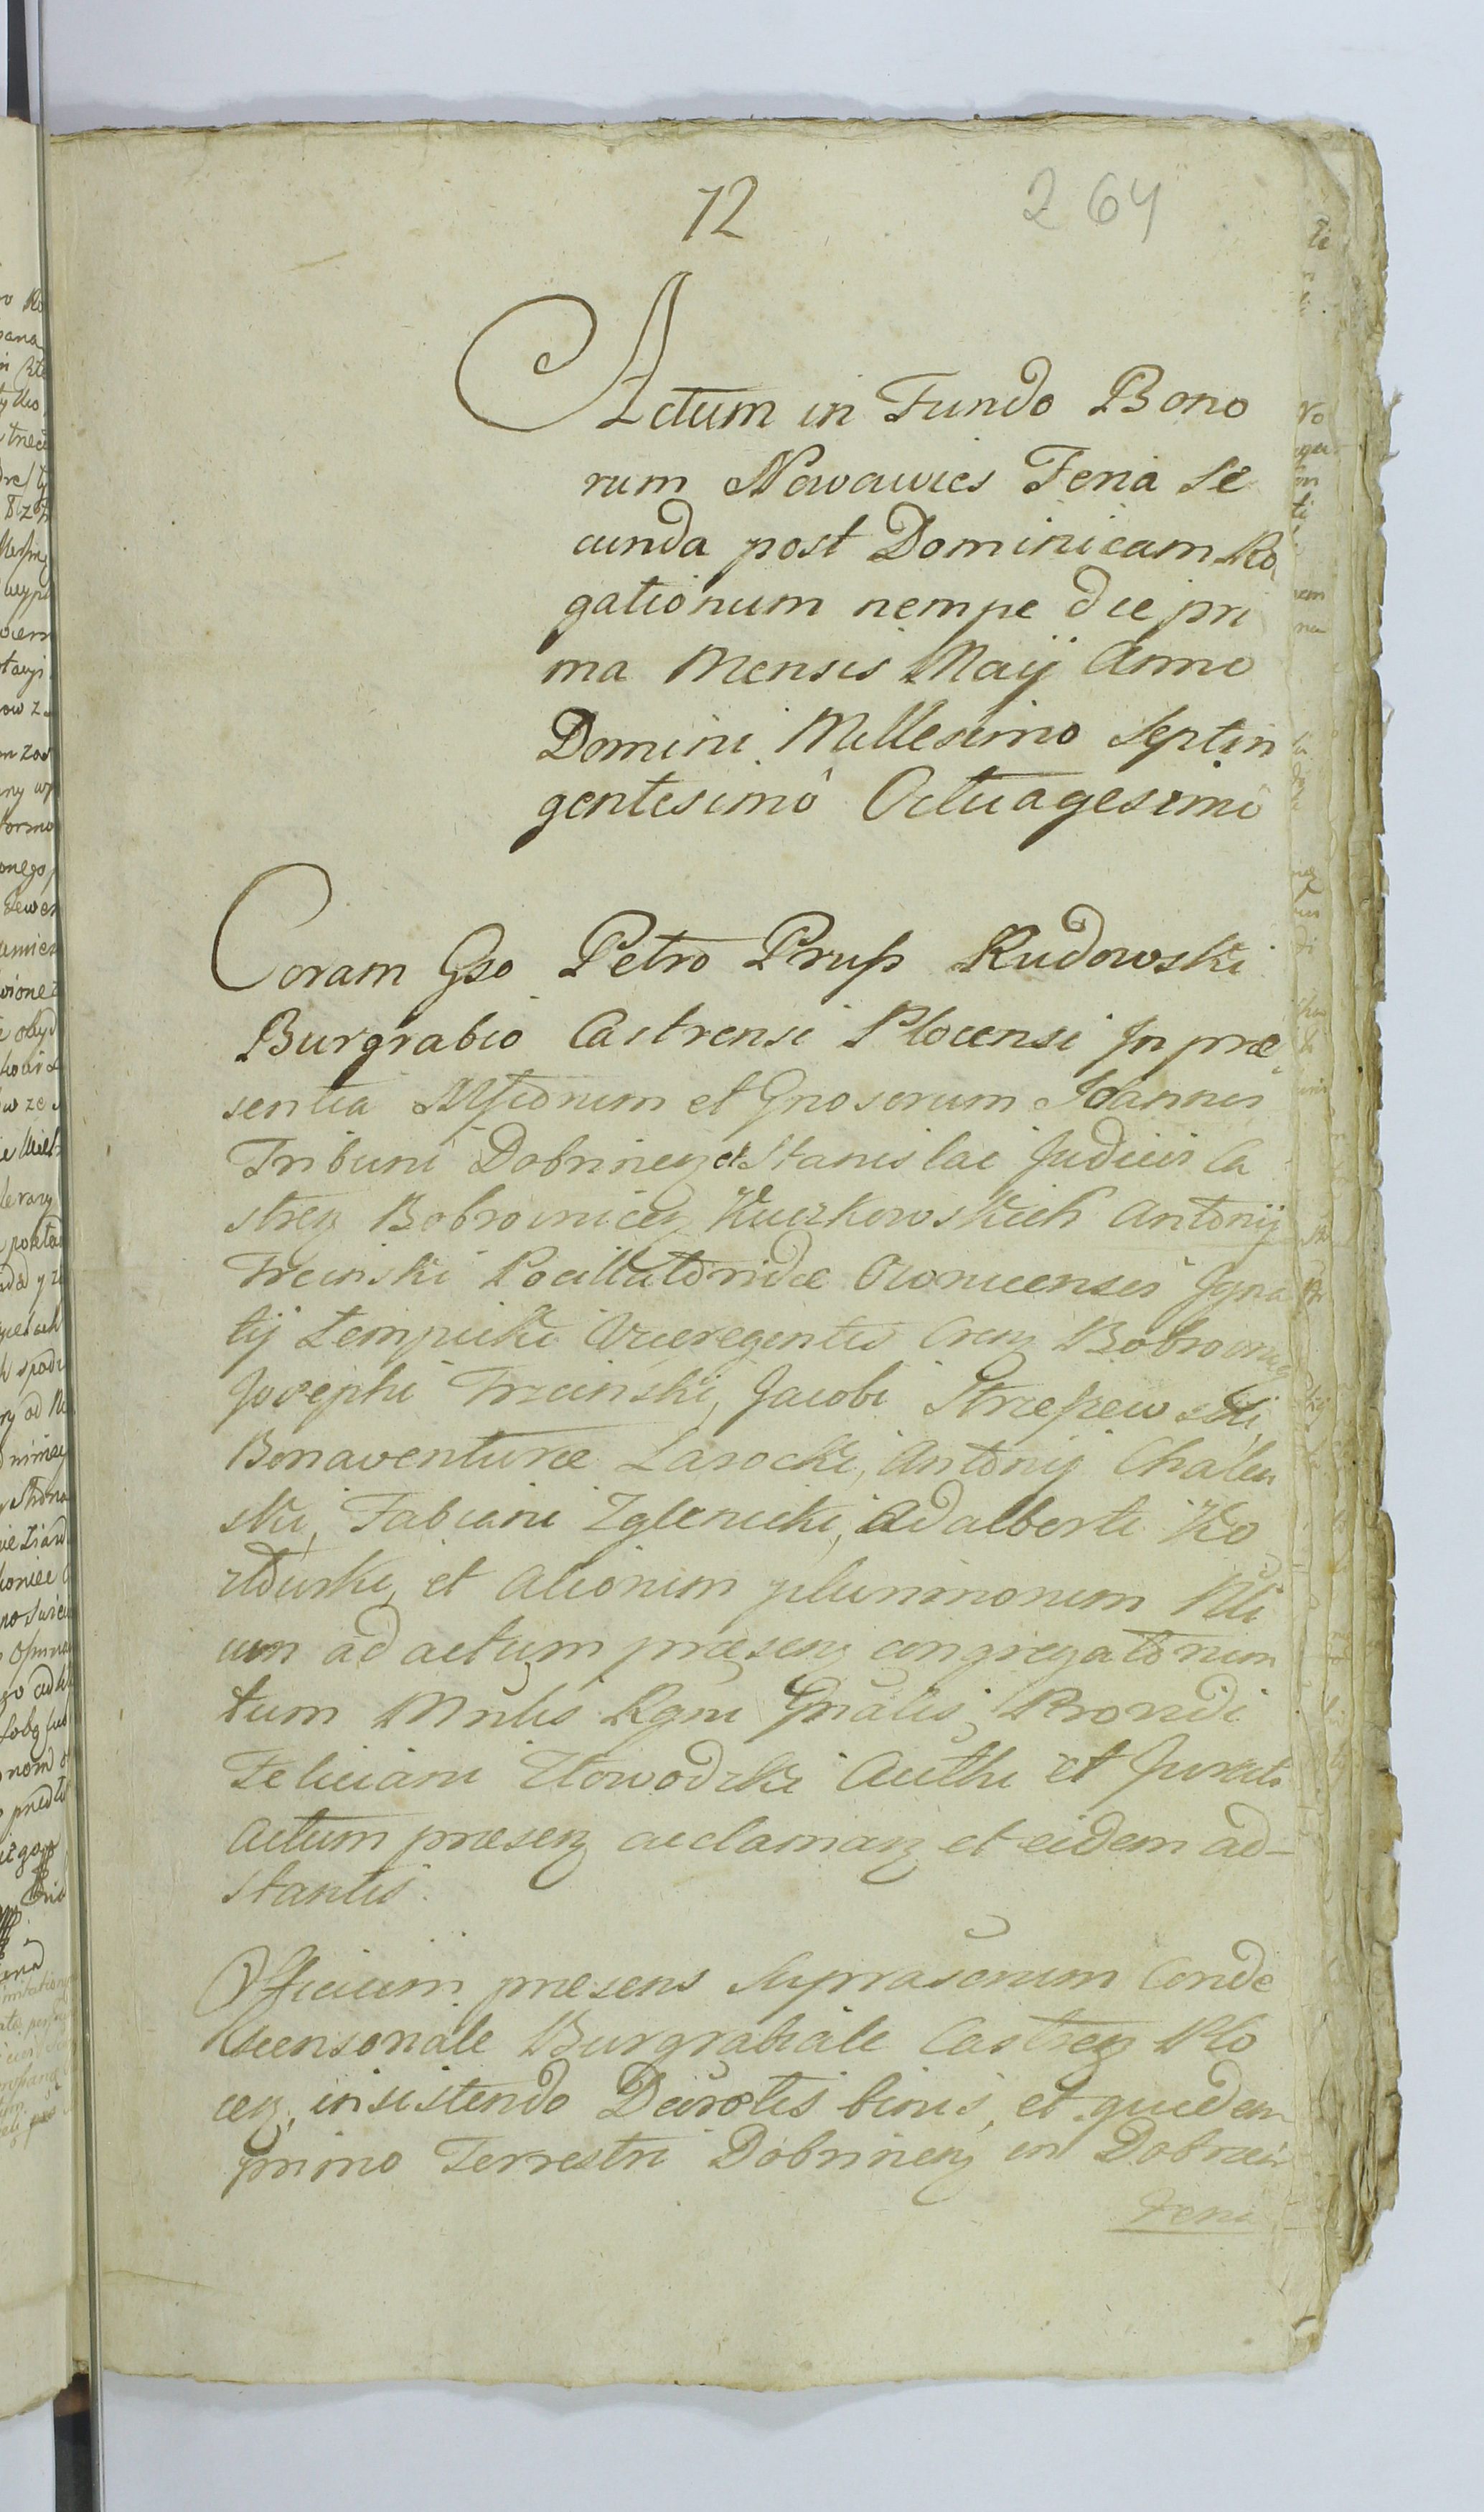 12
264
Actum in Fundo Bono
rum Nowawies Feria Se
cunda post Dominicam Ro
gationum nempe die pri
ma Mensis Maij Anno
Domini Millesimo Septin
gentesimô Octuagesimô
Coram Gso Petro Prusz Rudowski
Burgrabio Castrensi Plocensi In præ
sentia et Gnosorum Joannis
Tribuni Dobrinenz et Stanislai Judicis Ca
strenz Bobrownicenz Kuczkowskich Antonij
Trcinski Pocillatoridæ Owrucensis Igna
tij Zempicki Viceregentis Bobrownicenz
Josephi Trzcinski, Jacobi
Bonaventuræ Lasocki, Antonij Chalen
ski, Fabiani Zglenicki, Adalberti Ko
et Aliorum plurimorum Nli
um ad actum præsenz congregatorum
tum Mnlis Rgni Gnalis, Providi
Feliciani Zlowodzki Authi et Jurati
Actum præsenz acclamanz et eidem ad-
stantis.
Officium præsens Suprascrium Conde
scensoriale Burgrabiale Castrenz Plo
cenz, insistendo Decretis binis, et quidem
primo Terrestri Dobrinenz in Dobrzin
Feri